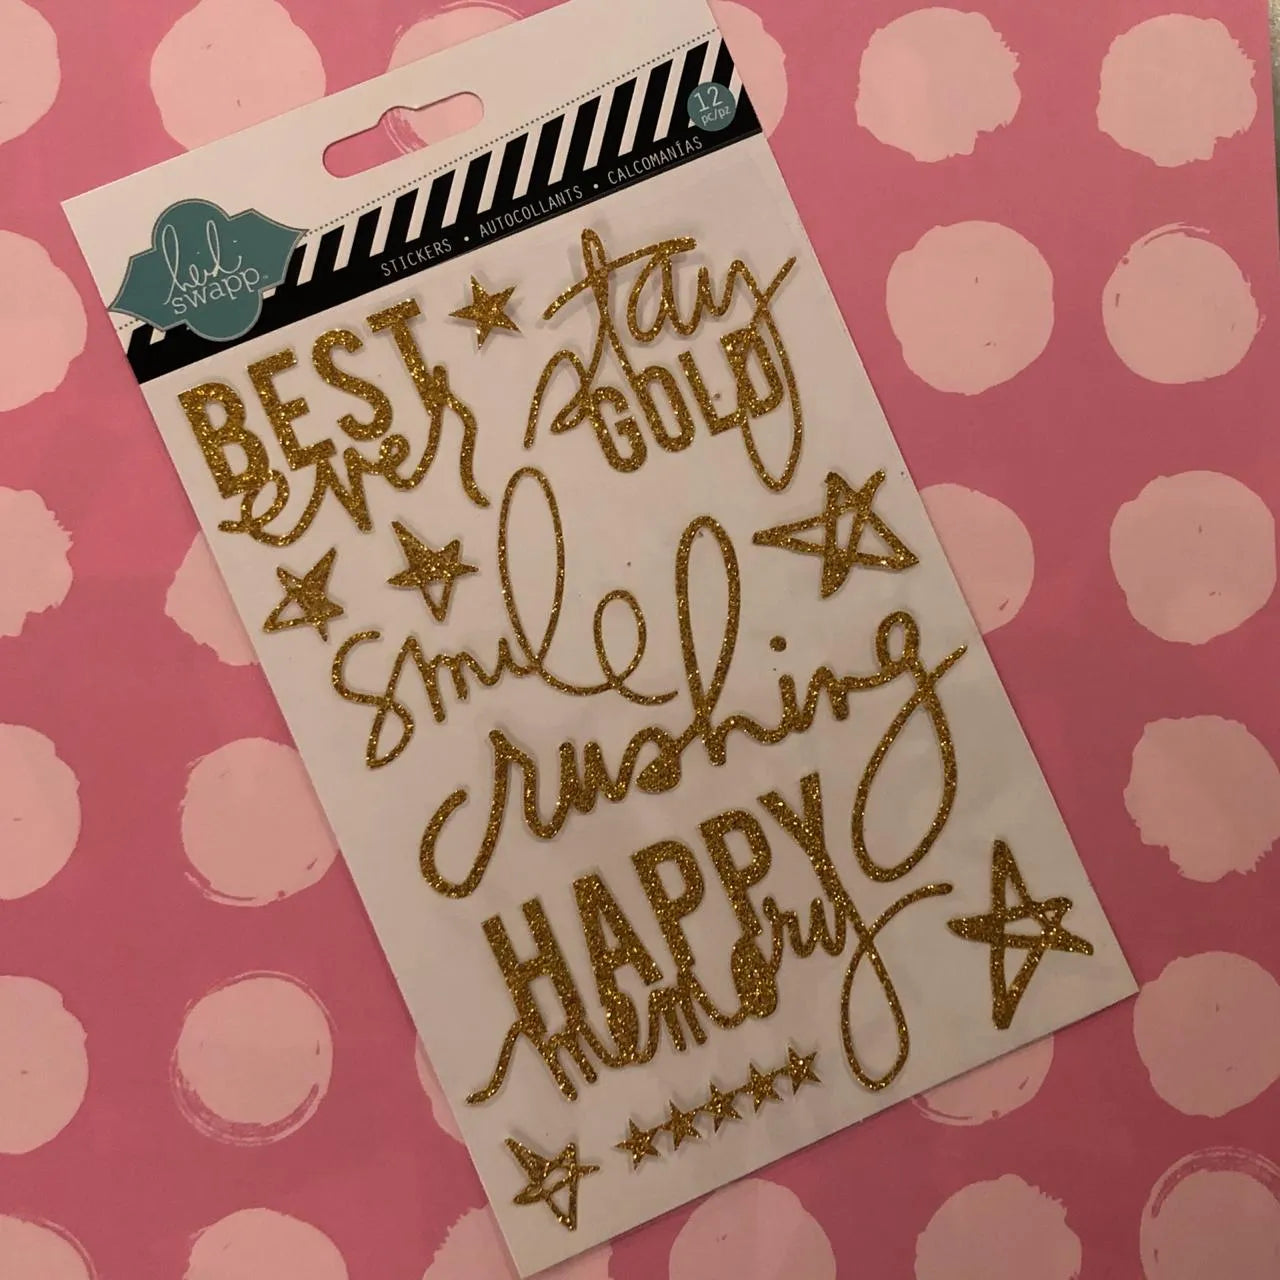 12
pc/pz
heidi
swapp™
STICKERS • AUTOCOLLANTS • CALCOMANÍAS
BEST
ever
stay
GOLD
smile
crushing
HAPPY
memory